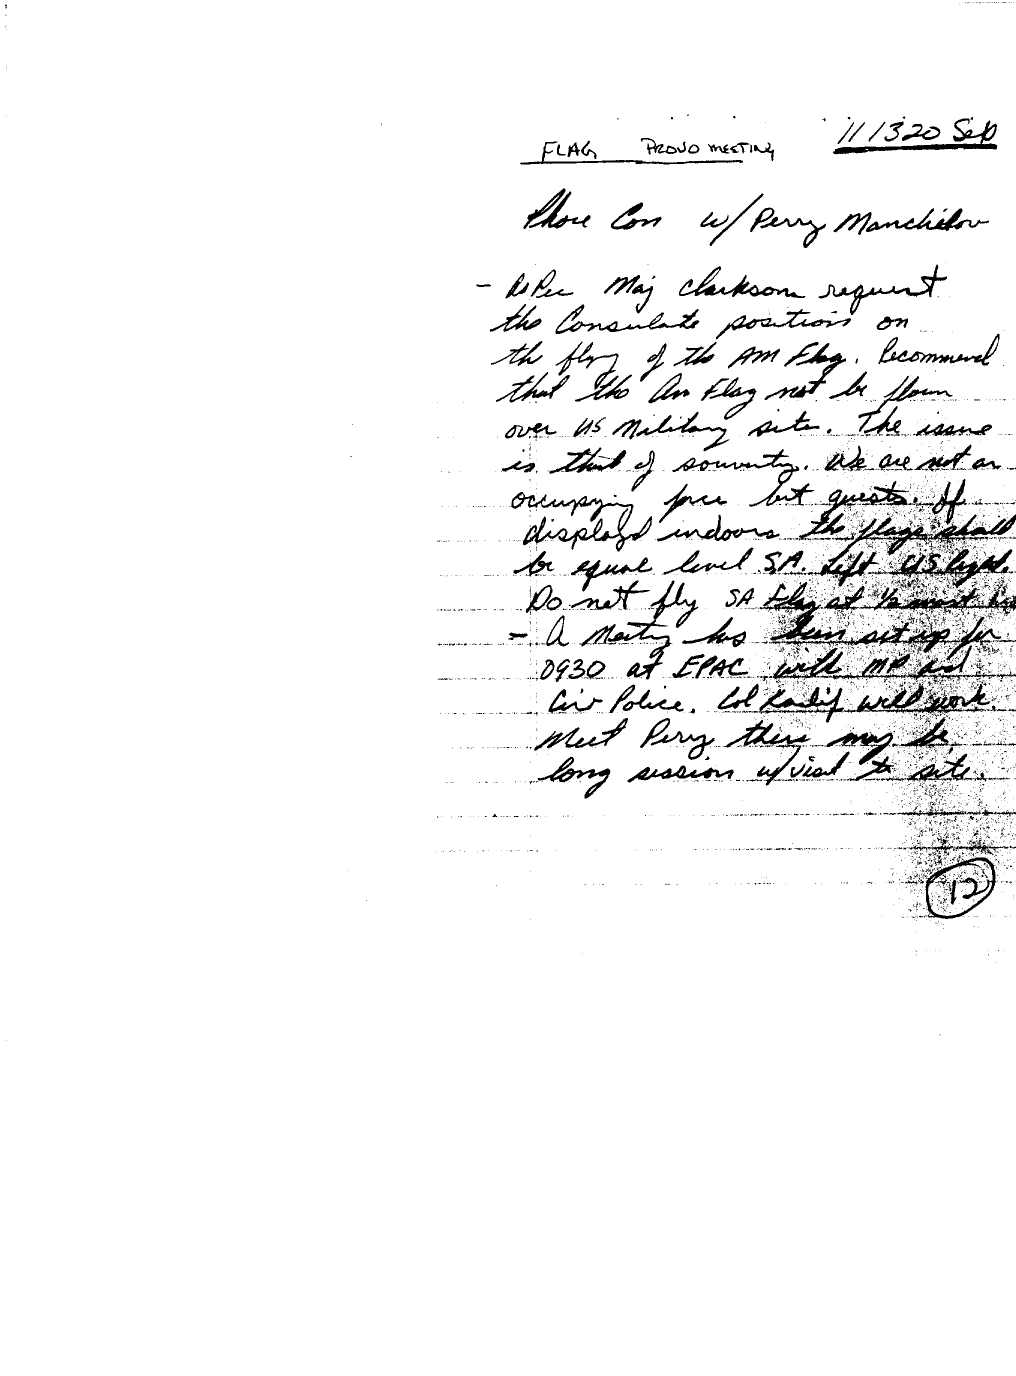 FLAG PROVO MEETING 111320 Sep
Phone Con w/ Perry Manchelov
- As Per Maj Clarkson request
the Consulate position on
the flying of the AM Flag. Recommend
that the Am Flag not be flown
over US Military site. The issue
is that of souventy. We are not an
occupying force but guests. If
displayd indoors the flags shall
be equal level SA. Left US Right.
Do not fly SA Flag at 1/2 mast
- A Meeting has been set up for
0930 at EPAC with MP and
Civ Police. Col will work.
Meet Perry there may be
long session w/ visit to site.
12